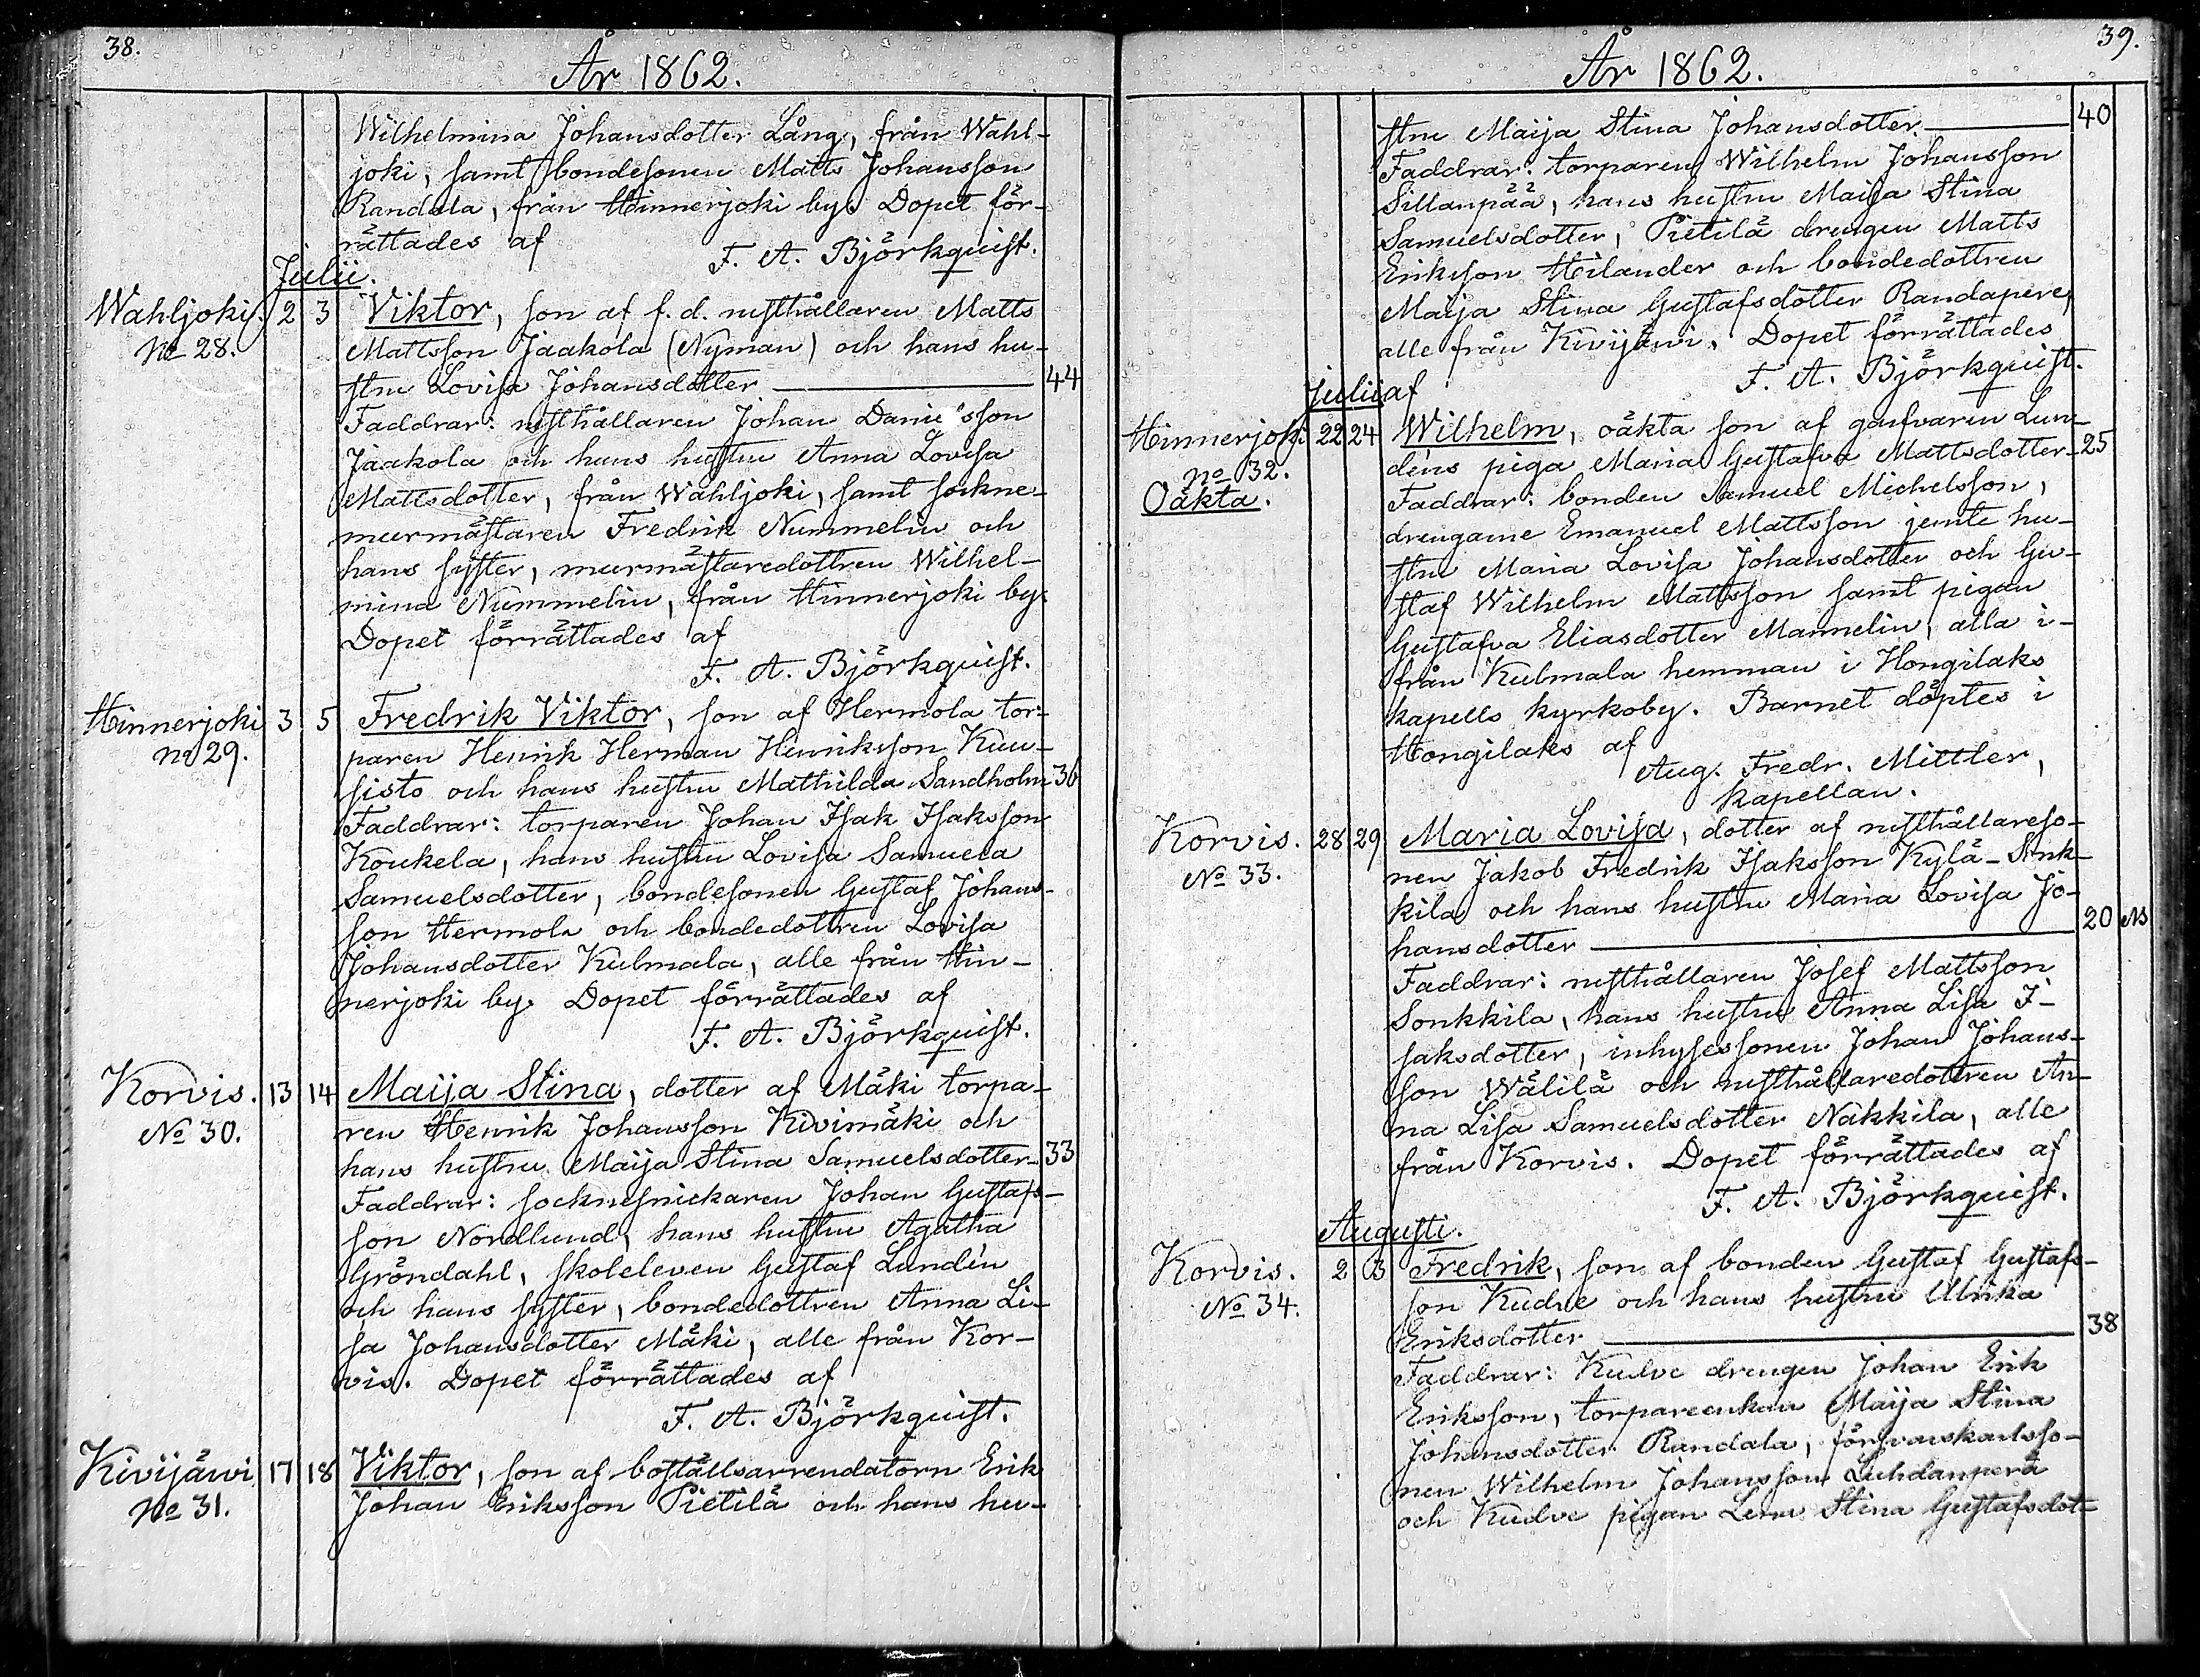 38.
År 1862.
Wilhelmina Johansdotter Lång, från Wahl-
joki, samt bondesonen Matts Johansson
Randala, från Hinnerjoki by. Dopet för-
rättades af
F. A. Björkquist.
Julii.
Wahljoki. 2 3 Viktor, son af f. d. rusthållaren Matts
No 28. Mattsson Jaakola (Nyman) och hans hu-
stru Lovisa Johansdotter 44
Faddrar: rusthållaren Johan Danielsson
Jaakola och hans hustru Anna Lovisa
Mattsdotter, från Wahljoki, samt sockne-
murmästaren Fredrik Nummelin och
hans syster, murmästaredottren Wilhel-
mina Nummelin, från Hinnerjoki by.
Dopet förrättades af
F. A. Björkquist.
Hinnerjoki 3 5 Fredrik Viktor, son af Hermola tor-
no 29. paren Henrik Herman Henriksson Kuu-
sisto och hans hustru Mathilda Sandholm 36
Faddrar: torparen Johan Isak Isaksson
Koukela, hans hustru Lovisa Samuela
Samuelsdotter, bondesonen Gustaf Johans-
son Hermola och bondedottren Lovisa
Johansdotter Kulmala, alle från Hin-
nerjoki by. Dopet förrättades af
F. A. Björkquist.
Korvis. 13 14 Maija Stina, dotter af Mäki torpa-
No 30. ren Henrik Johansson Kivimäki och
hans hustru Maija Stina Samuelsdotter 33
Faddrar: socknesnickaren Johan Gustafs-
son Nordlund, hans hustru Agatha
Gröndahl, skoleleven Gustaf Lundén
och hans syster, bondedottren Anna Li-
sa Johansdotter Mäki, alle från Kor-
vis. Dopet förrättades af
F. A. Björkquist.
Kivijärwi 17 18 Viktor, son af boställsarrendatorn Erik
No 31. Johan Eriksson Pietilä och hans hu-
39.
År 1862.
stru Maija Stina Johansdotter. 40
Faddrar: torparen Wilhelm Johansson
Sillanpää, hans hustru Maija Stina
Samuelsdotter, Pietilä drengen Matts
Eriksson Hilander och bondedottren
Maija Stina Gustafsdotter Randapere,
alle från Kivijärwi. Dopet förrättades
af F. A. Björkquist.
Julii
Hinnerjoki 22 24 Wilhelm, oäkta son af garfvaren Lun-
no 32. déns piga Maria Gustafva Mattsdotter 25
Oäkta. Faddrar: bonden Samuel Michelsson,
drengarne Emanuel Mattsson jemte hu-
stru Maria Lovisa Johansdotter och Gu-
staf Wilhelm Mattsson samt pigan
Gustafva Eliasdotter Mannelin, alla i-
från Kulmala hemman i Hongilaks
kapells kyrkoby. Barnet döptes i
Hongilaks af
Aug. Fredr. Mittler,
kapellan.
Korvis. 28 29 Maria Lovisa, dotter af rusthållareso-
No 33. nen Jakob Fredrik Isaksson Kylä-Sonk-
kila och hans hustru Maria Lovisa Jo-
hansdotter 20
Faddrar: rusthållaren Josef Mattsson
Sonkkila, hans hustru Anna Lisa I-
saksdotter, inhysessonen Johan Johans-
son Wälilä och rusthållaredottren An-
na Lisa Samuelsdotter Nakkila, alle
från Korvis. Dopet förrättades af
F. A. Björkquist.
Augusti.
Korvis. 2 3 Fredrik, son af bonden Gustaf Gustafs-
No 34. son Kudve och hans hustru Ulrika
Eriksdotter 38
Faddrar: Kudve drengen Johan Erik
Eriksson, torpareenkan Maija Stina
Johansdotter Randala, försvarskarlsso-
nen Wilhelm Johansson Luhdanperä
och Kudve pigan Lena Stina Gustafsdot-